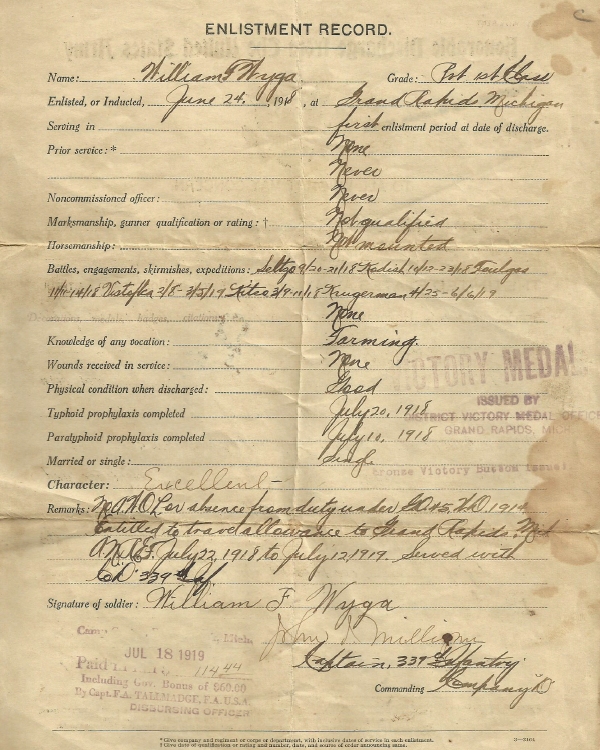 ENLISTMENT RECORD.
Name: William F Wyga Grade: Pvt 1st Class
Enlisted, or Inducted, June 24, 1918, at Grand Rapids Michigan
Serving in first enlistment period at date of discharge.
Prior service: * None
Never
Noncommissioned officer: Never
Marksmanship, gunner qualification or rating: † Not qualified
Horsemanship: Not mounted
Battles, engagements, skirmishes, expeditions: Seltzo 9/20-21/18 Kodish 10/12-23/18
11/11-14/18 Vistafka 2/8-3/5/19 Kitsa 3/9-11/18 4/25-6/6/19
None
Knowledge of any vocation: Farming.
Wounds received in service: None
Physical condition when discharged: Good
Typhoid prophylaxis completed July 20, 1918
Paratyphoid prophylaxis completed July 10, 1918
Married or single: Single
Character: Excellent
Remarks: No A.W.O.L. or absence from duty under G.O. 45, W.D. 1914
Entitled to travel allowance to Grand Rapids, Mich
July 22, 1918 to July 12, 1919. Served with
Co D 339 Inf
Signature of soldier: William F Wyga
Captain, 339 Infantry
Commanding Company D
VICTORY MEDAL
ISSUED BY
DISTRICT VICTORY MEDAL OFFICE
GRAND RAPIDS, MICH
Bronze Victory Button Issued.
Camp Mich.
JUL 18 1919
Paid 114 44
Including Gov. Bonus of $60.00
By Capt. F.A. TALMADGE, F.A. U.S.A.
DISBURSING OFFICER
* Give company and regiment or corps or department, with inclusive dates of service in each enlistment.
† Give date of qualification or rating and number, date, and source of order announcing same.